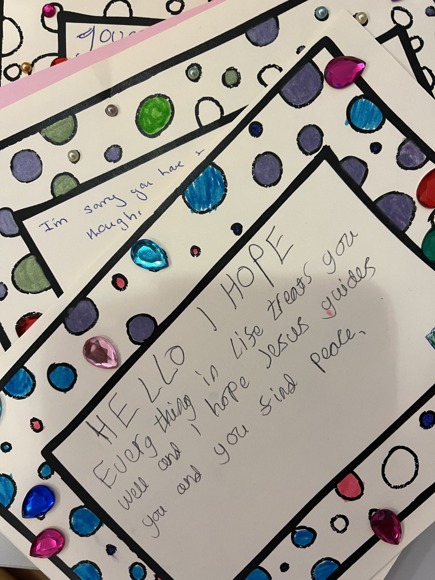 I'm sorry you have
HELLO I HOPE
Every thing in Life treats you
well and I hope Jesus guides
you and you find peace.